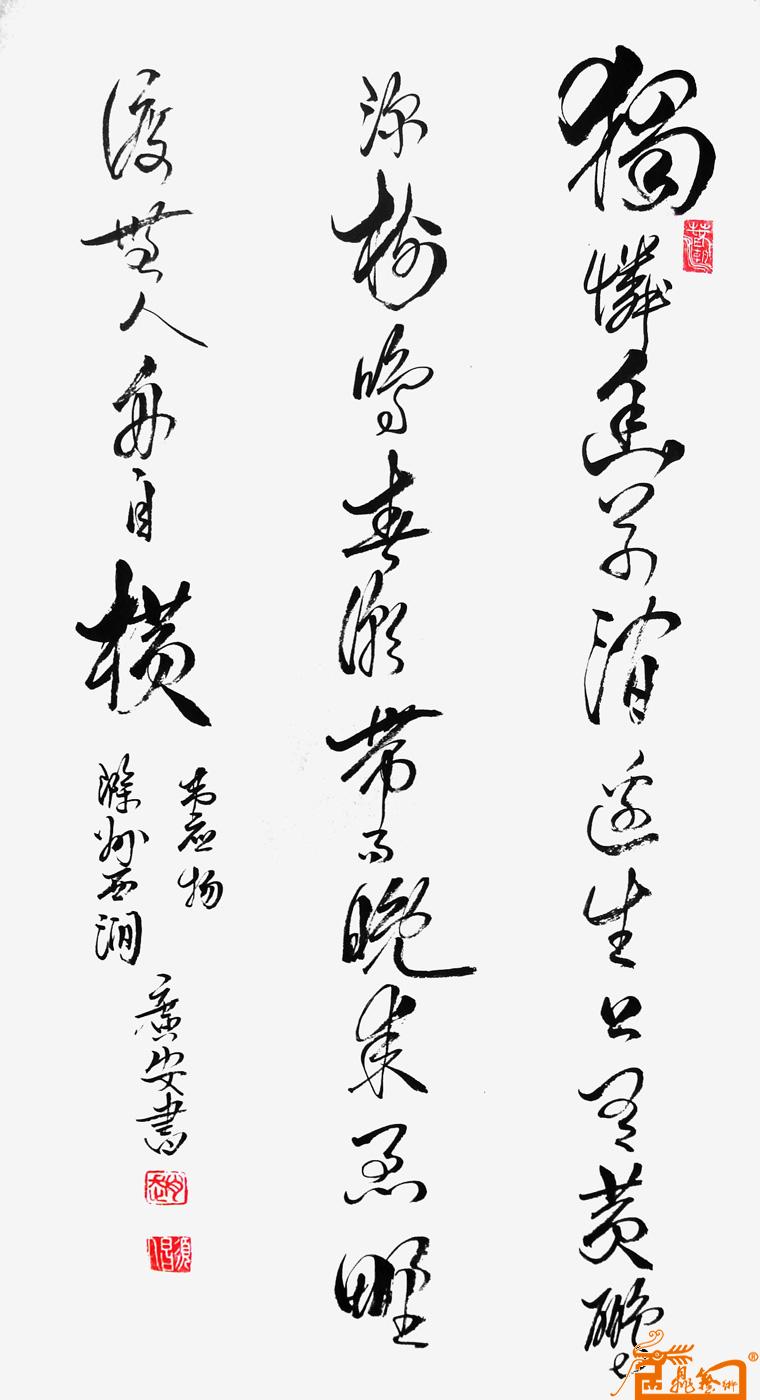 獨憐幽草澗邊生上有黃鸝
深樹鳴春潮帶雨晚來急野
渡無人舟自橫
韋應物
滁州西澗
廣安書